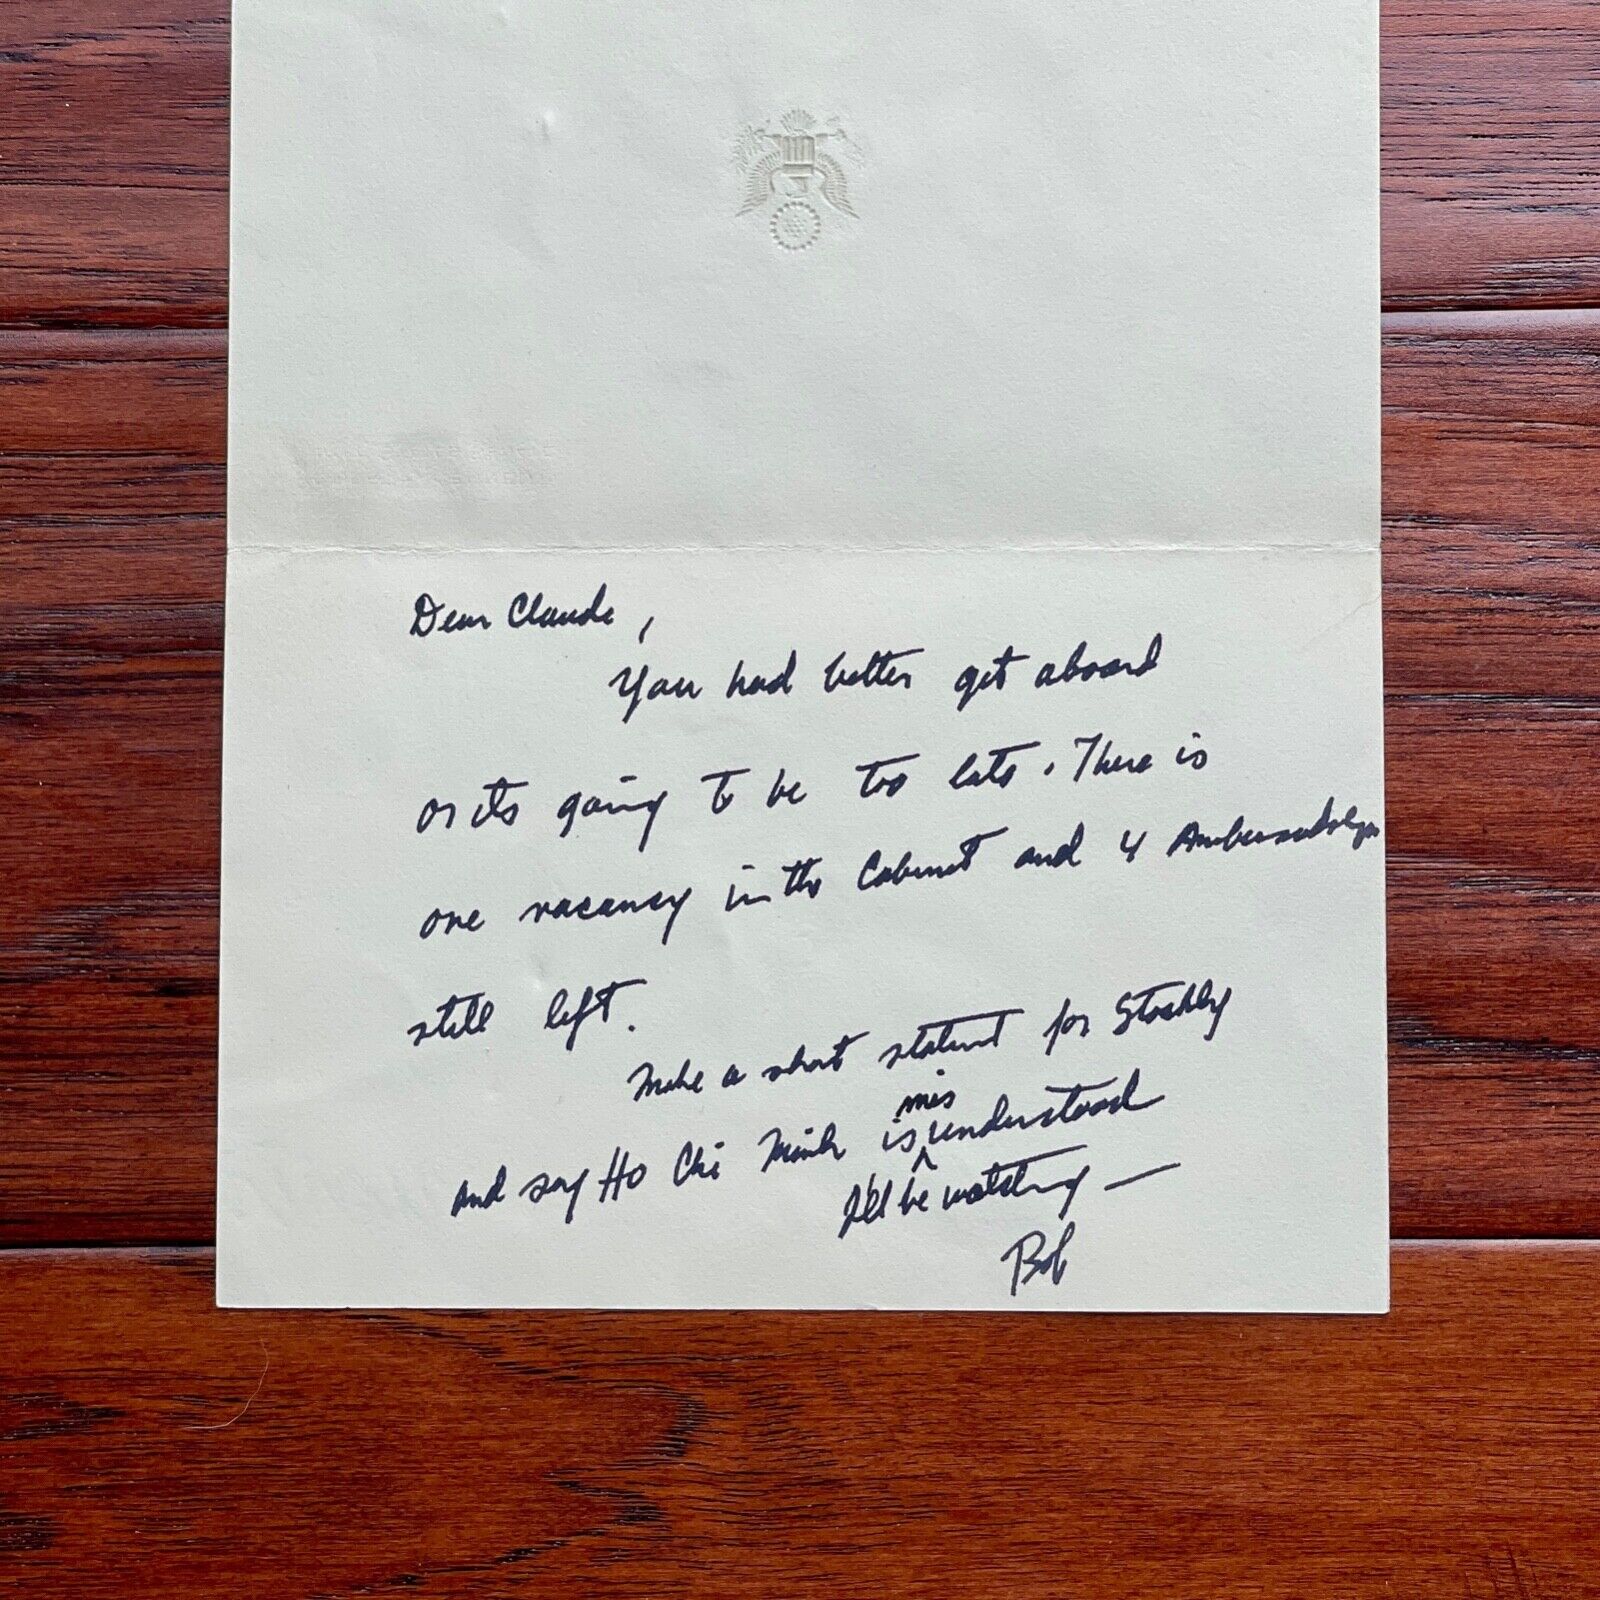 Dear Claude,
You had better get aboard
or its going to be too late. There is
one vacancy in the Cabinet and 4 Ambassadorships
still left.
Make a short statement for Stokely
mis
and say Ho Chi Minh is understood
I'll be watching —
Bob